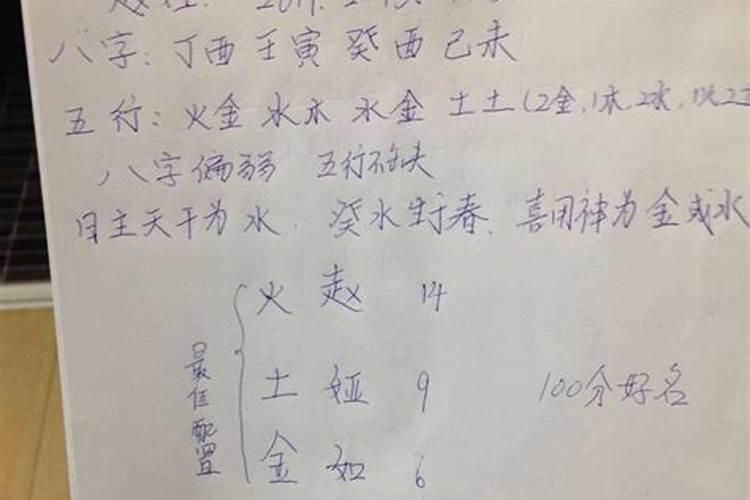 八字：丁酉 壬寅 癸酉 己未
五行：火金 水木 水金 土土（2金，1木，2水，1火2土
八字偏弱 五行不缺
日主天干为水 癸水生于春 喜用神为金或水
最佳配置
火 赵 14
土 娅 9
金 如 6
100分好名